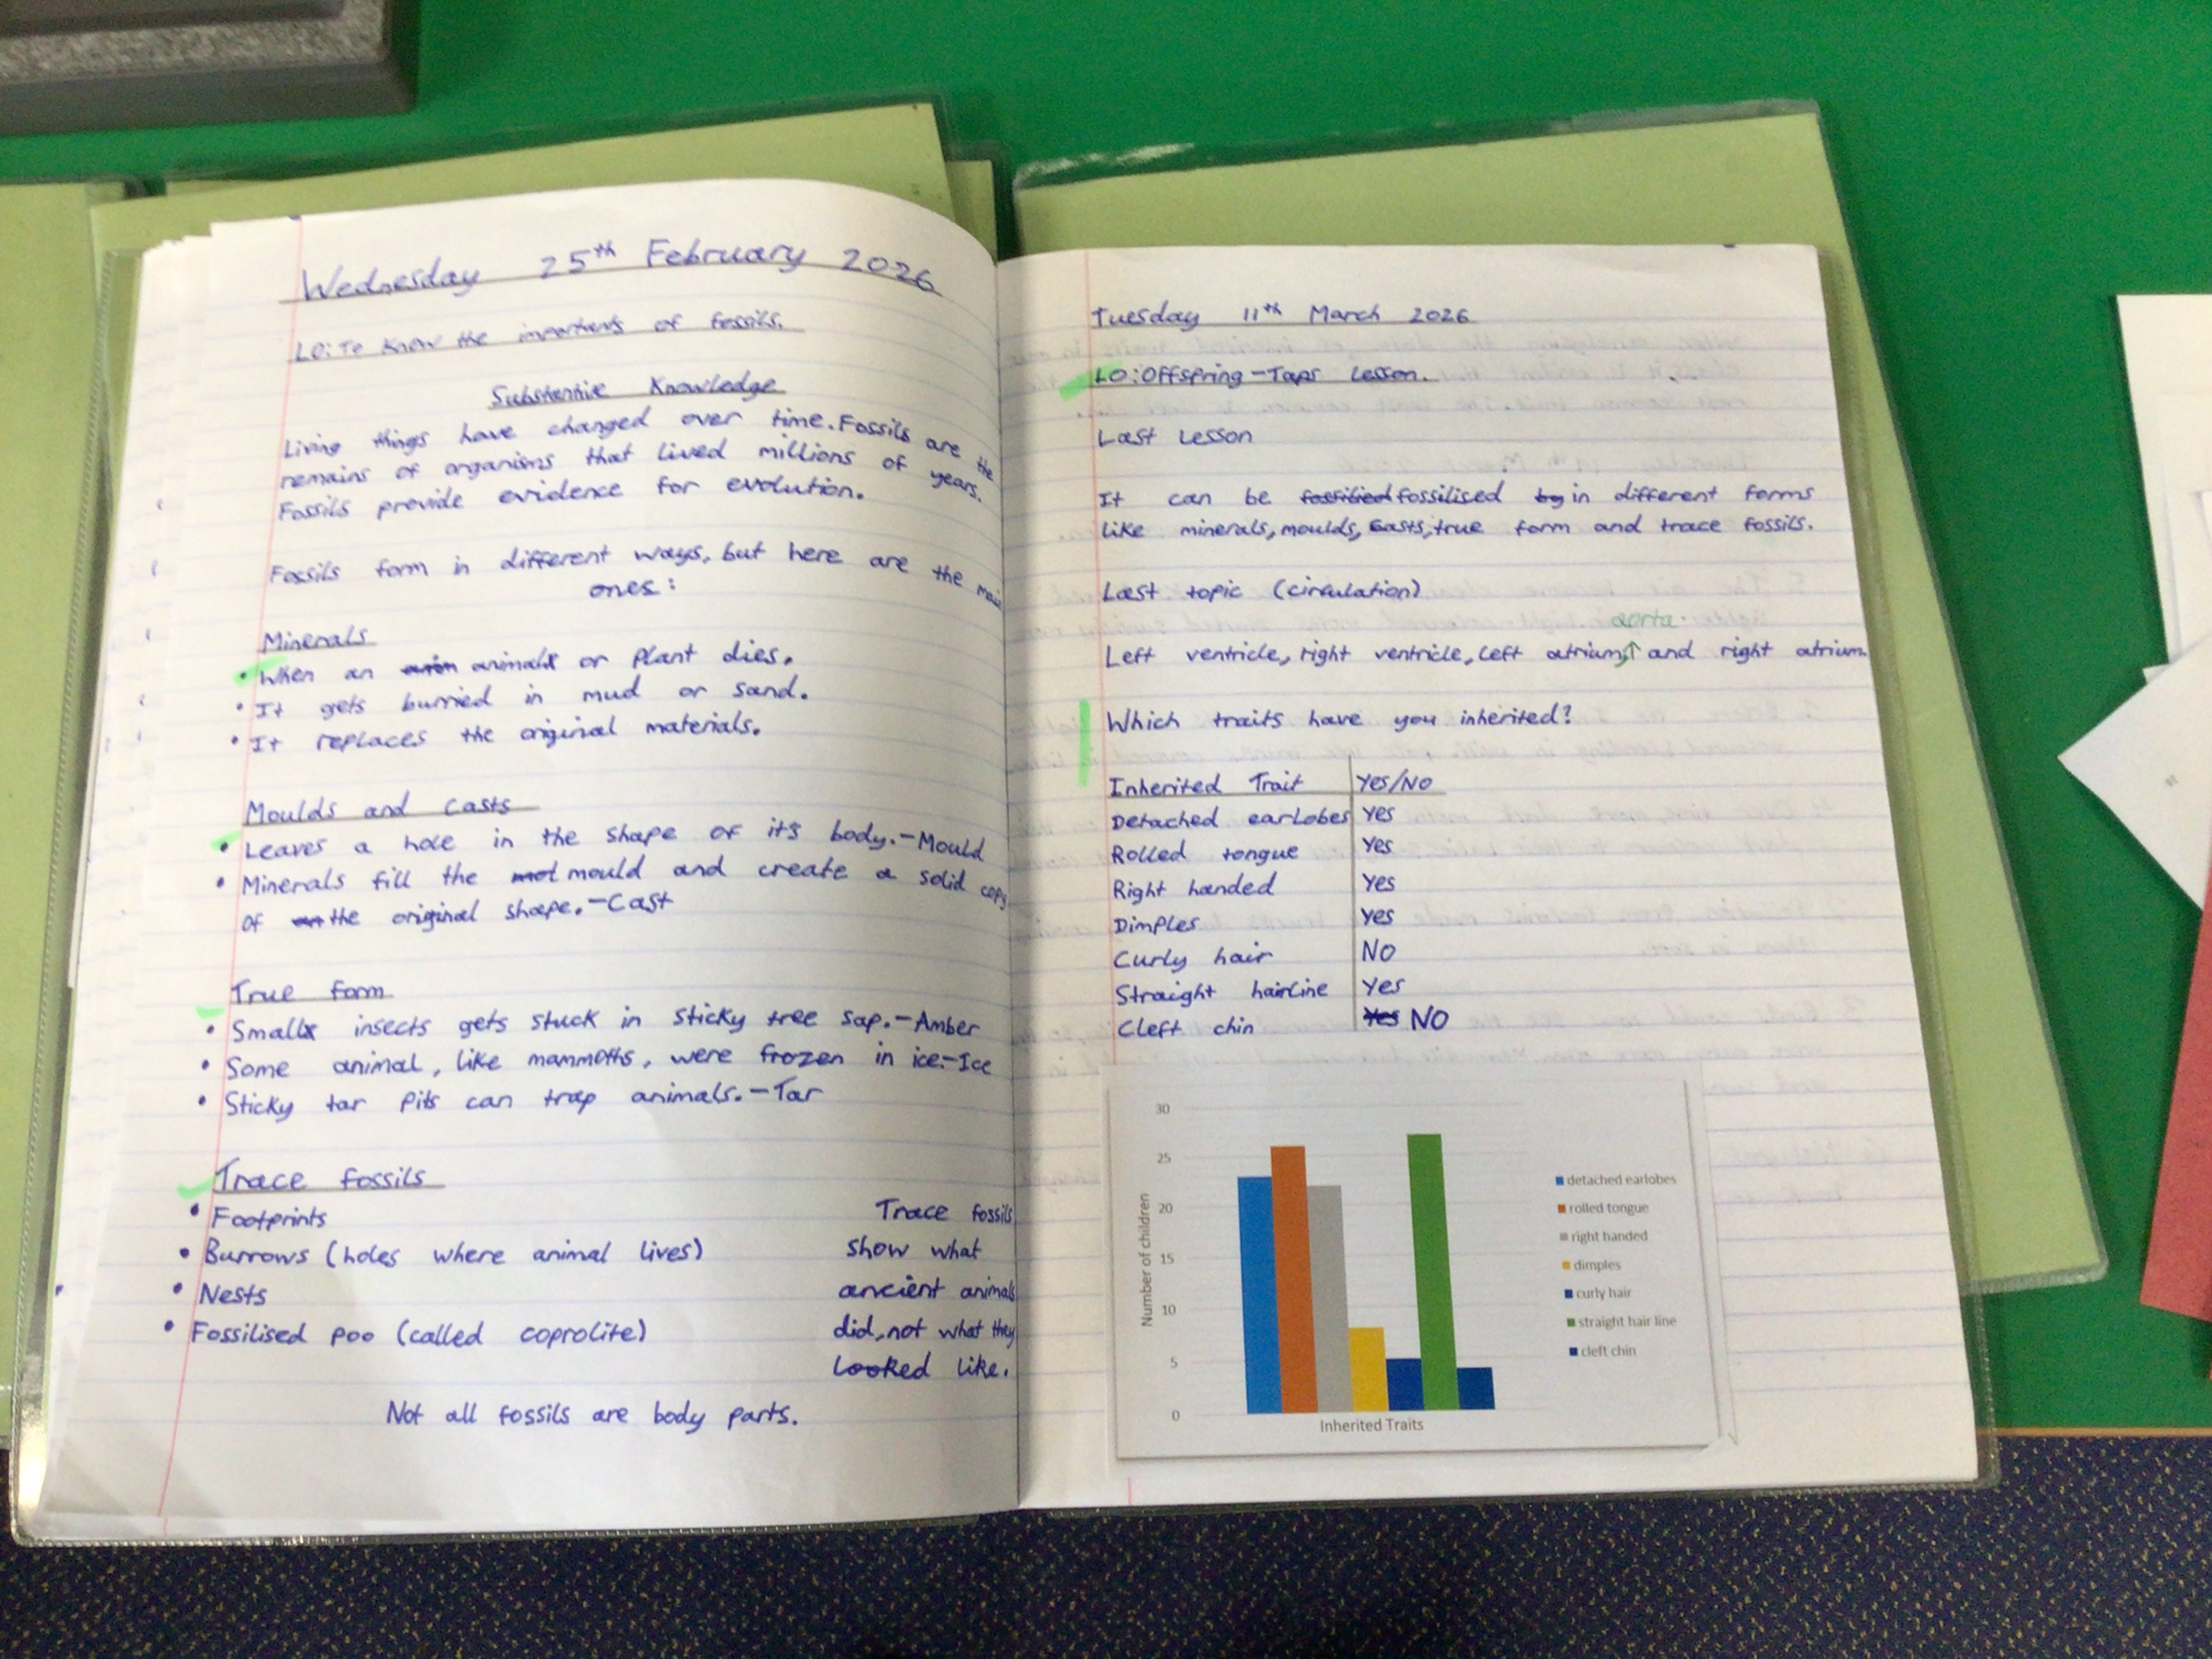 Wednesday 25th February 2026
LO: To know the importants of fossils.
Substantive Knowledge
Living things have changed over time. Fossils are the
remains of organisms that lived millions of years.
Fossils provide evidence for evolution.
Fossils form in different ways, but here are the main
ones:
Minerals
• When an anim animals or plant dies.
• It gets burried in mud or sand.
• It replaces the original materials.
Moulds and Casts
• Leaves a hole in the shape of it's body. - Mould
• Minerals fill the mol mould and create a solid copy
of an the original shape. - Cast
True form
• Smalls insects gets stuck in sticky tree sap. - Amber
• Some animal, like mammoths, were frozen in ice. - Ice
• Sticky tar pits can trap animals. - Tar
Trace fossils
• Footprints
• Burrows (holes where animal lives)
• Nests
• Fossilised poo (called coprolite)
Trace fossils
show what
ancient animals
did, not what they
looked like.
Not all fossils are body parts.
Tuesday 11th March 2026
LO: Offspring - Taps lesson.
Last Lesson
It can be fossilied fossilised by in different forms
like minerals, moulds, casts, true form and trace fossils.
Last topic (circulation)
aorta.
Left ventricle, right ventricle, left atrium, ↑ and right atrium.
Which traits have you inherited?
Inherited Trait Yes/No
Detached earlobes Yes
Rolled tongue Yes
Right handed Yes
Dimples Yes
Curly hair NO
Straight hairline Yes
Cleft chin Yes NO
30
25
20
15
10
5
0
Number of children
Inherited Traits
detached earlobes
rolled tongue
right handed
dimples
curly hair
straight hair line
cleft chin